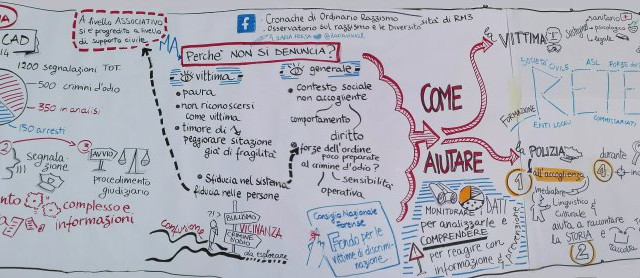 A livello ASSOCIATIVO
si è progredito a livello
di supporto civile
MA
CAD
1200 segnalazioni TOT.
500 crimini d'odio
350 in analisi
150 arresti
2
3
segnala-
zione
AVVIO
procedimento
giudiziario
complesso e
informazioni
f
Cronache di Ordinario Razzismo
Osservatorio sul razzismo e le Diversità di RM3
Perche' NON SI DENUNCIA?
vittima
• paura
• non riconoscersi
come vittima
• timore di
peggiorare sitazione
già di fragilità
• Sfiducia nel sistema
fiducia nelle persone
generale
• contesto sociale
non accogliente
comportamento
diritto
• forze dell'ordine
poco preparate
al crimine d'odio?
sensibilità
operativa
confusione
?!
BULLISMO
VICINANZA
CRIMINE
ODIO
da esplorare
Consiglio Nazionale
Forense
Fondo per le
vittime di discrimi-
nazione
COME
AIUTARE
MONITORARE DATI
per analizzarli e
COMPRENDERE
per reagire con
informazione e
prevenzione
la VITTIMA
sostegno
sanitario
psicologico
legale
SOCIETÀ CIVILE
ASL
FORZE
RETE
FORMAZIONE
ENTI LOCALI
COMMISSARIATI
la POLIZIA
durante
1
all'accoglienza
4
mediatore
Linguistico e
Culturale
aiuta a raccontare
la STORIA
2